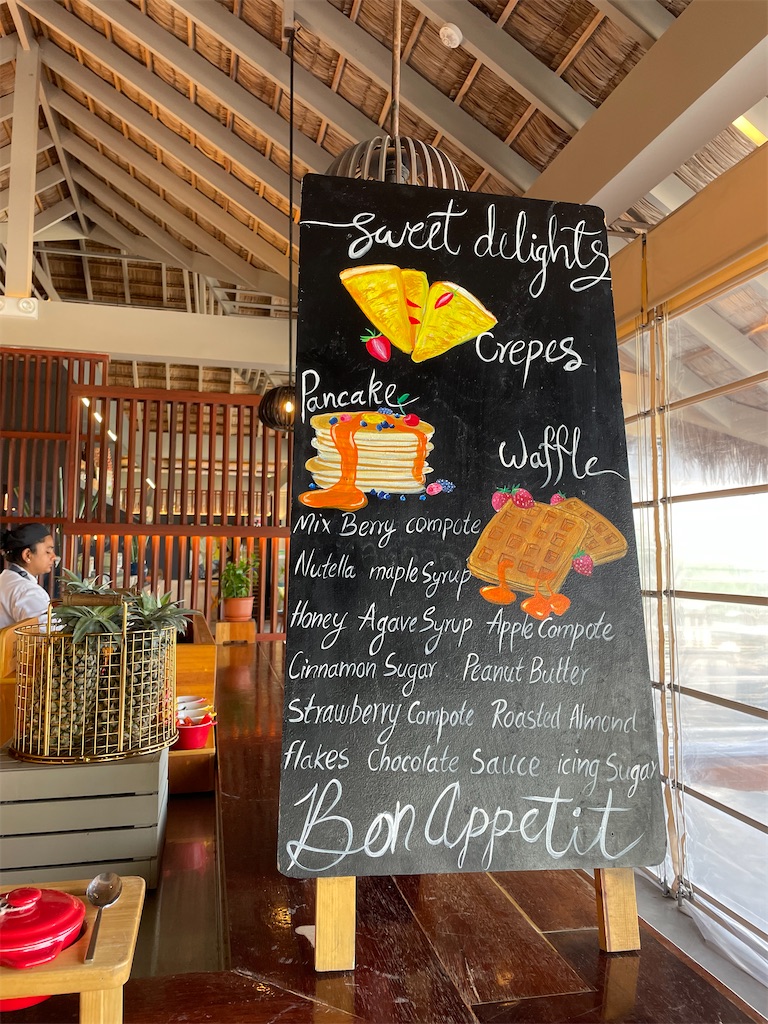 Sweet delights
Crepes
Pancake
Waffle
Mix Berry compote
Nutella maple Syrup
Honey Agave Syrup Apple Compote
Cinnamon Sugar Peanut Butter
Strawberry Compote Roasted Almond
flakes Chocolate Sauce icing Sugar
Bon Appetit